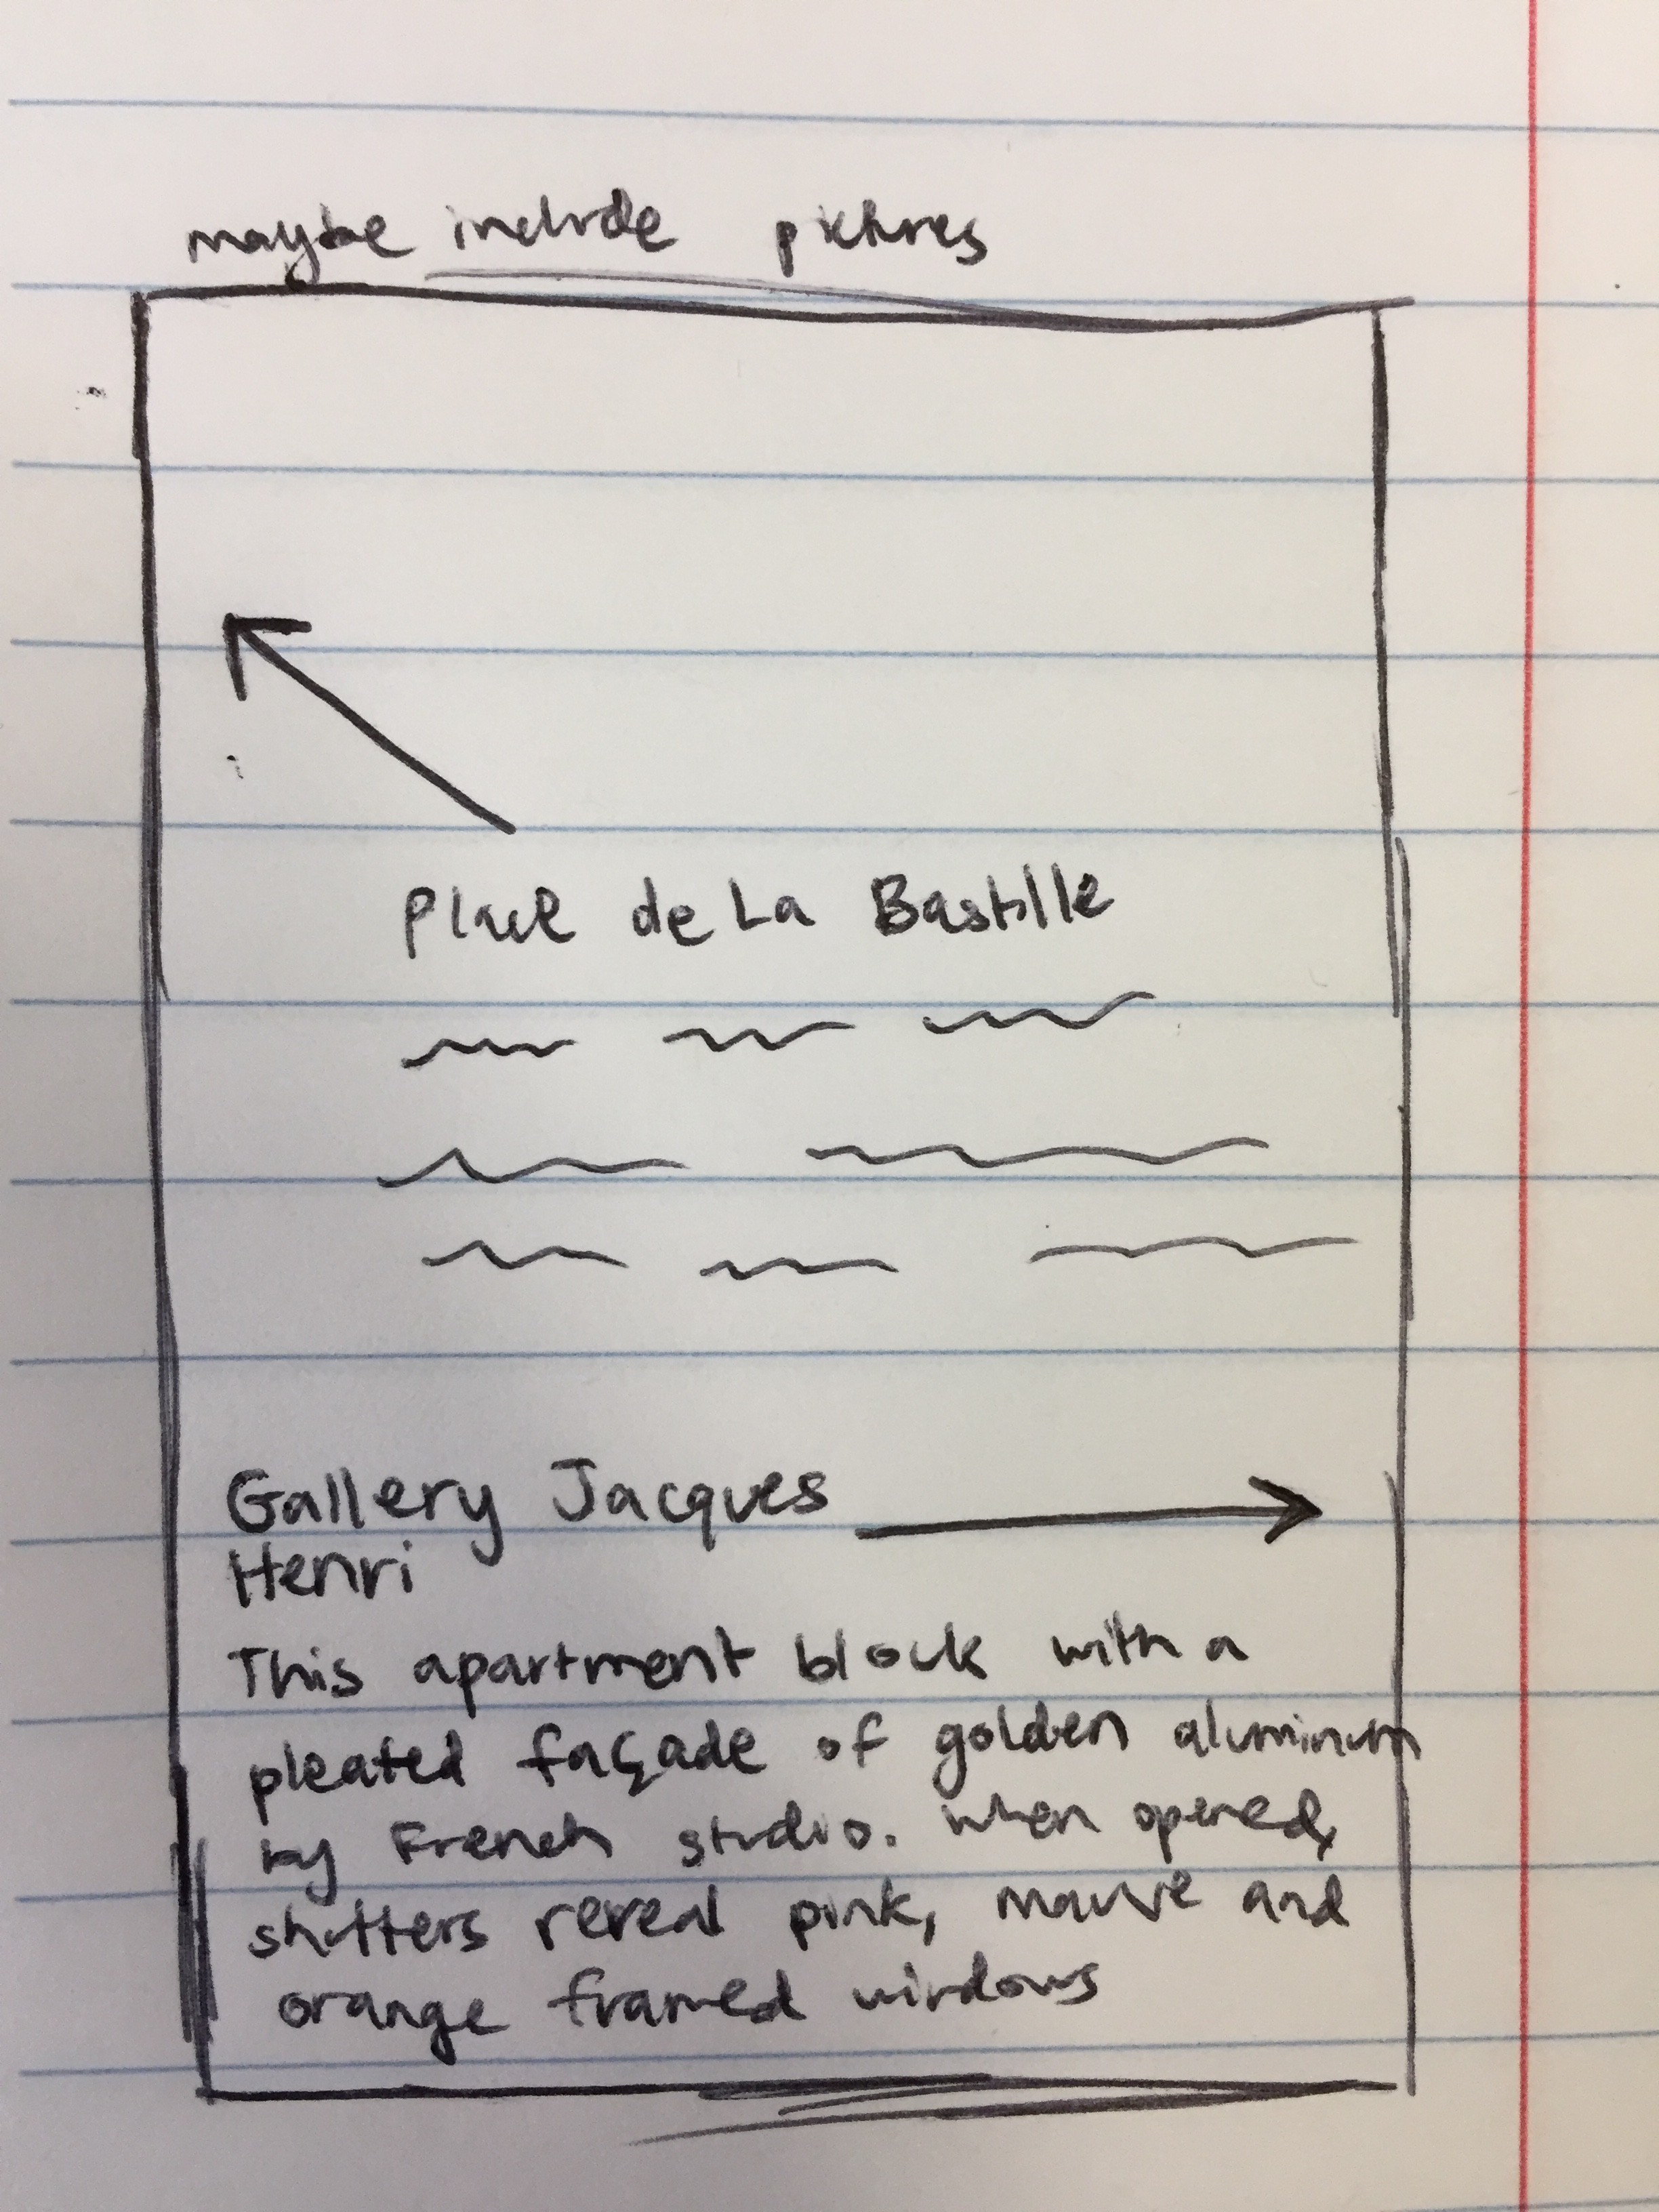 maybe include pictures
Place de La Bastille
Gallery Jacques
Henri
This apartment block with a
pleated façade of golden aluminum
by French studio. When opened,
shutters reveal pink, mauve and
orange framed windows